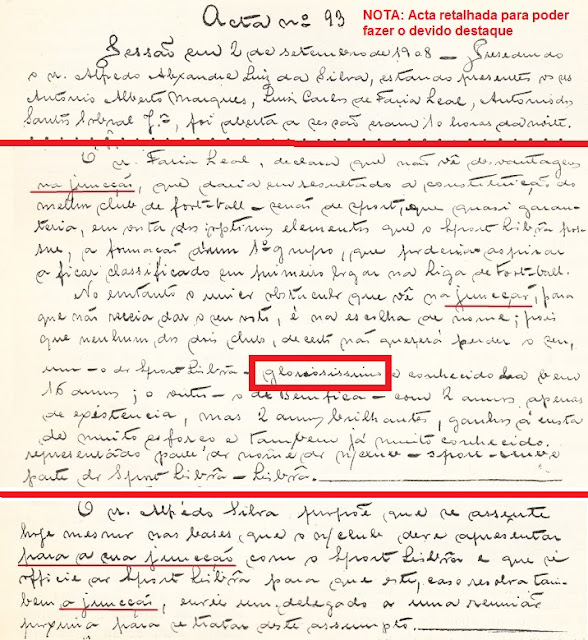 Acta nº 93
NOTA: Acta retalhada para poder
fazer o devido destaque
Sessão em 2 de setembro de 1908 – Presidindo
o sr. Alfredo Alexandre Luiz da Silva, estando presentes os srs
António Alberto Marques, Luiz Carlos de Faria Leal, António dos
Santos Sobral Jº, foi aberta a sessão eram 10 horas da noite.
O sr. Faria Leal, declara que não vê desvantagens
na juncção, que daria em resultado a constituição do
melhor club de foot-ball – senão de sport, que quasi garan-
teria, em vista dos optimos elementos que o Sport Lisbôa pos-
sue, a formação d'um 1º grupo, que poderia aspirar
a ficar classificado em primeiro logar na Liga de Foot-ball.
No entanto o unico obstaculo que vê na juncção, para
que não receia dar o seu voto, é na escolha de nome; pois
que nenhum dos dois clubs, decerto não quererá perder o seu,
um – o do Sport Lisbôa – gloriosissimo e conhecido ha bem
16 annos; o outro – o de Bemfica – com 2 annos apenas
de existencia, mas 2 annos brilhantes, ganhos á custa
de muito esforço e tambem já muito conhecido.
representado parte do nome do n/club – sport-club e
parte do Sport Lisbôa – Lisbôa.
O sr. Alfredo Silva propõe que se assente
hoje mesmo nas bases, que o n/club deve apresentar
para a sua juncção com o Sport Lisbôa e que se
officie ao Sport Lisbôa para que este, caso resolva tam-
bem a juncção, envie um delegado a uma reunião
proxima para se tratar deste assumpto.